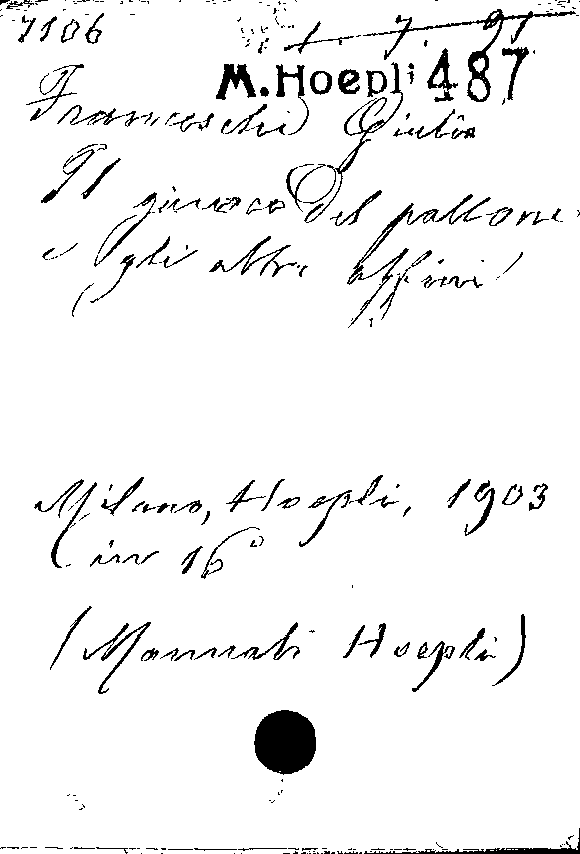 7106 1. 7. 91
M. Hoepli 487
Franceschi Giulio
Il giuoco del pallone
e gli altri affini
Milano, Hoepli, 1903
in 16°
(Manuali Hoepli)